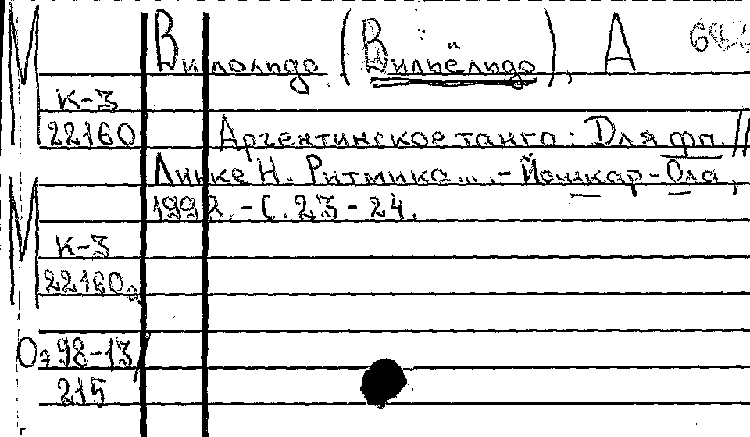 М Вилполидо (Вильёлидо), А
К-3
22160 Аргентинское танго: Для фп //
Линке Н. Ритмика... - Йошкар-Ола,
М 1992. - С. 23-24.
К-3
22160а
Оэ 98-13/
215